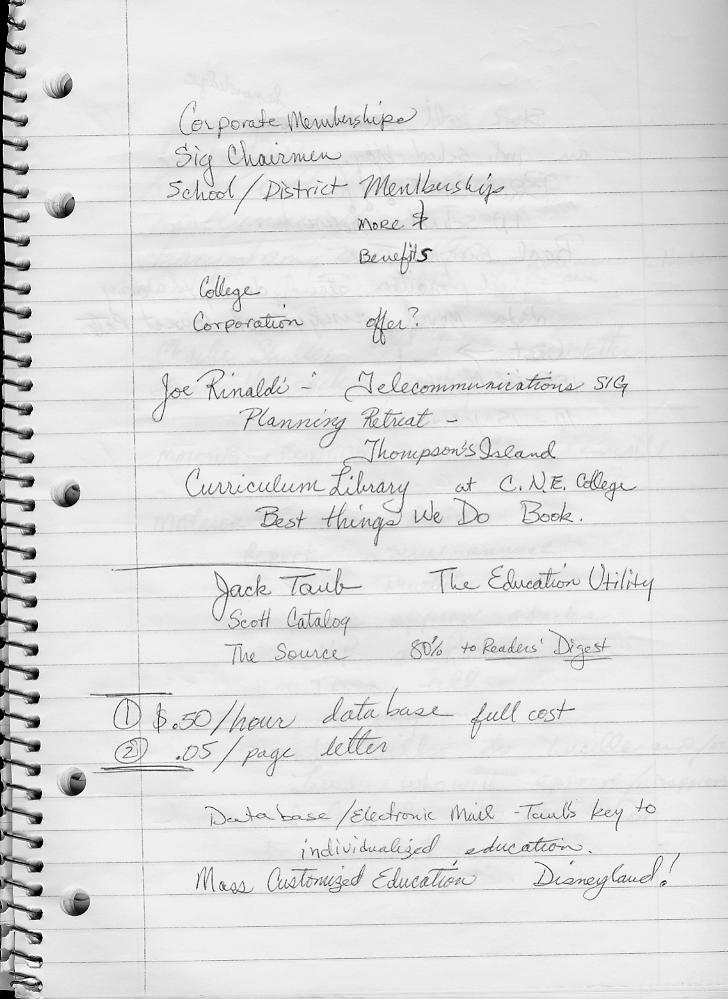 Corporate Memberships
Sig Chairmen
School/District Mentbership
More $
Benefits
College
Corporation offer?
Joe Rinaldi - Telecommunications SIG
Planning Retreat -
Thompson's Island
Curriculum Library at C.N.E. College
Best things We Do Book.
Jack Taub The Education Utility
Scott Catalog
The Source 80% to Readers' Digest
① $.50/hour database full cost
② .05/page letter
Database/Electronic Mail - Taub's key to
individualized education.
Mass Customized Education Disneyland!